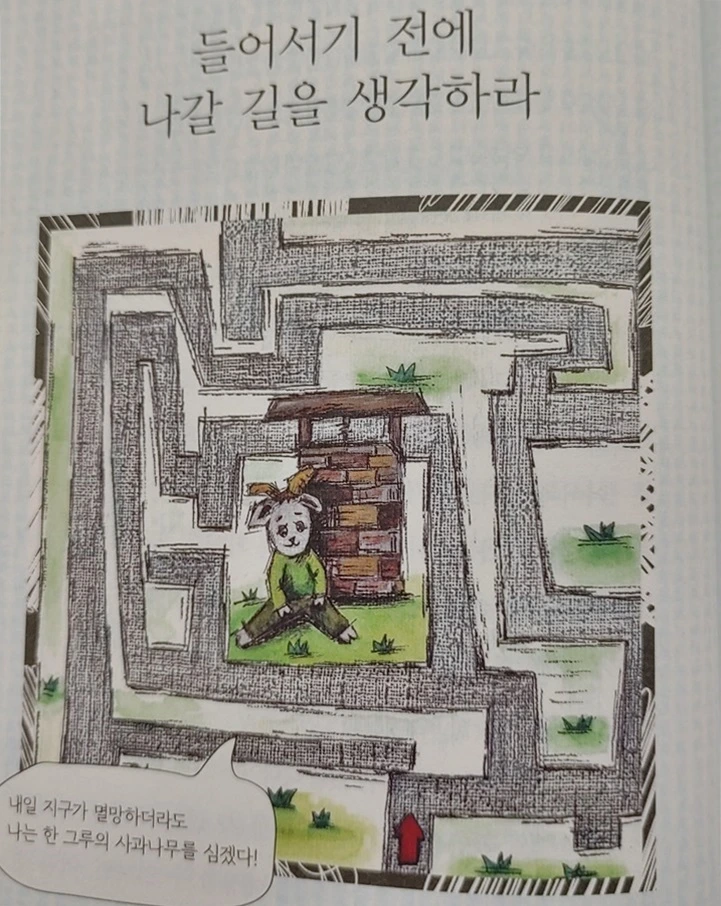 들어서기 전에
나갈 길을 생각하라
내일 지구가 멸망하더라도
나는 한 그루의 사과나무를 심겠다!